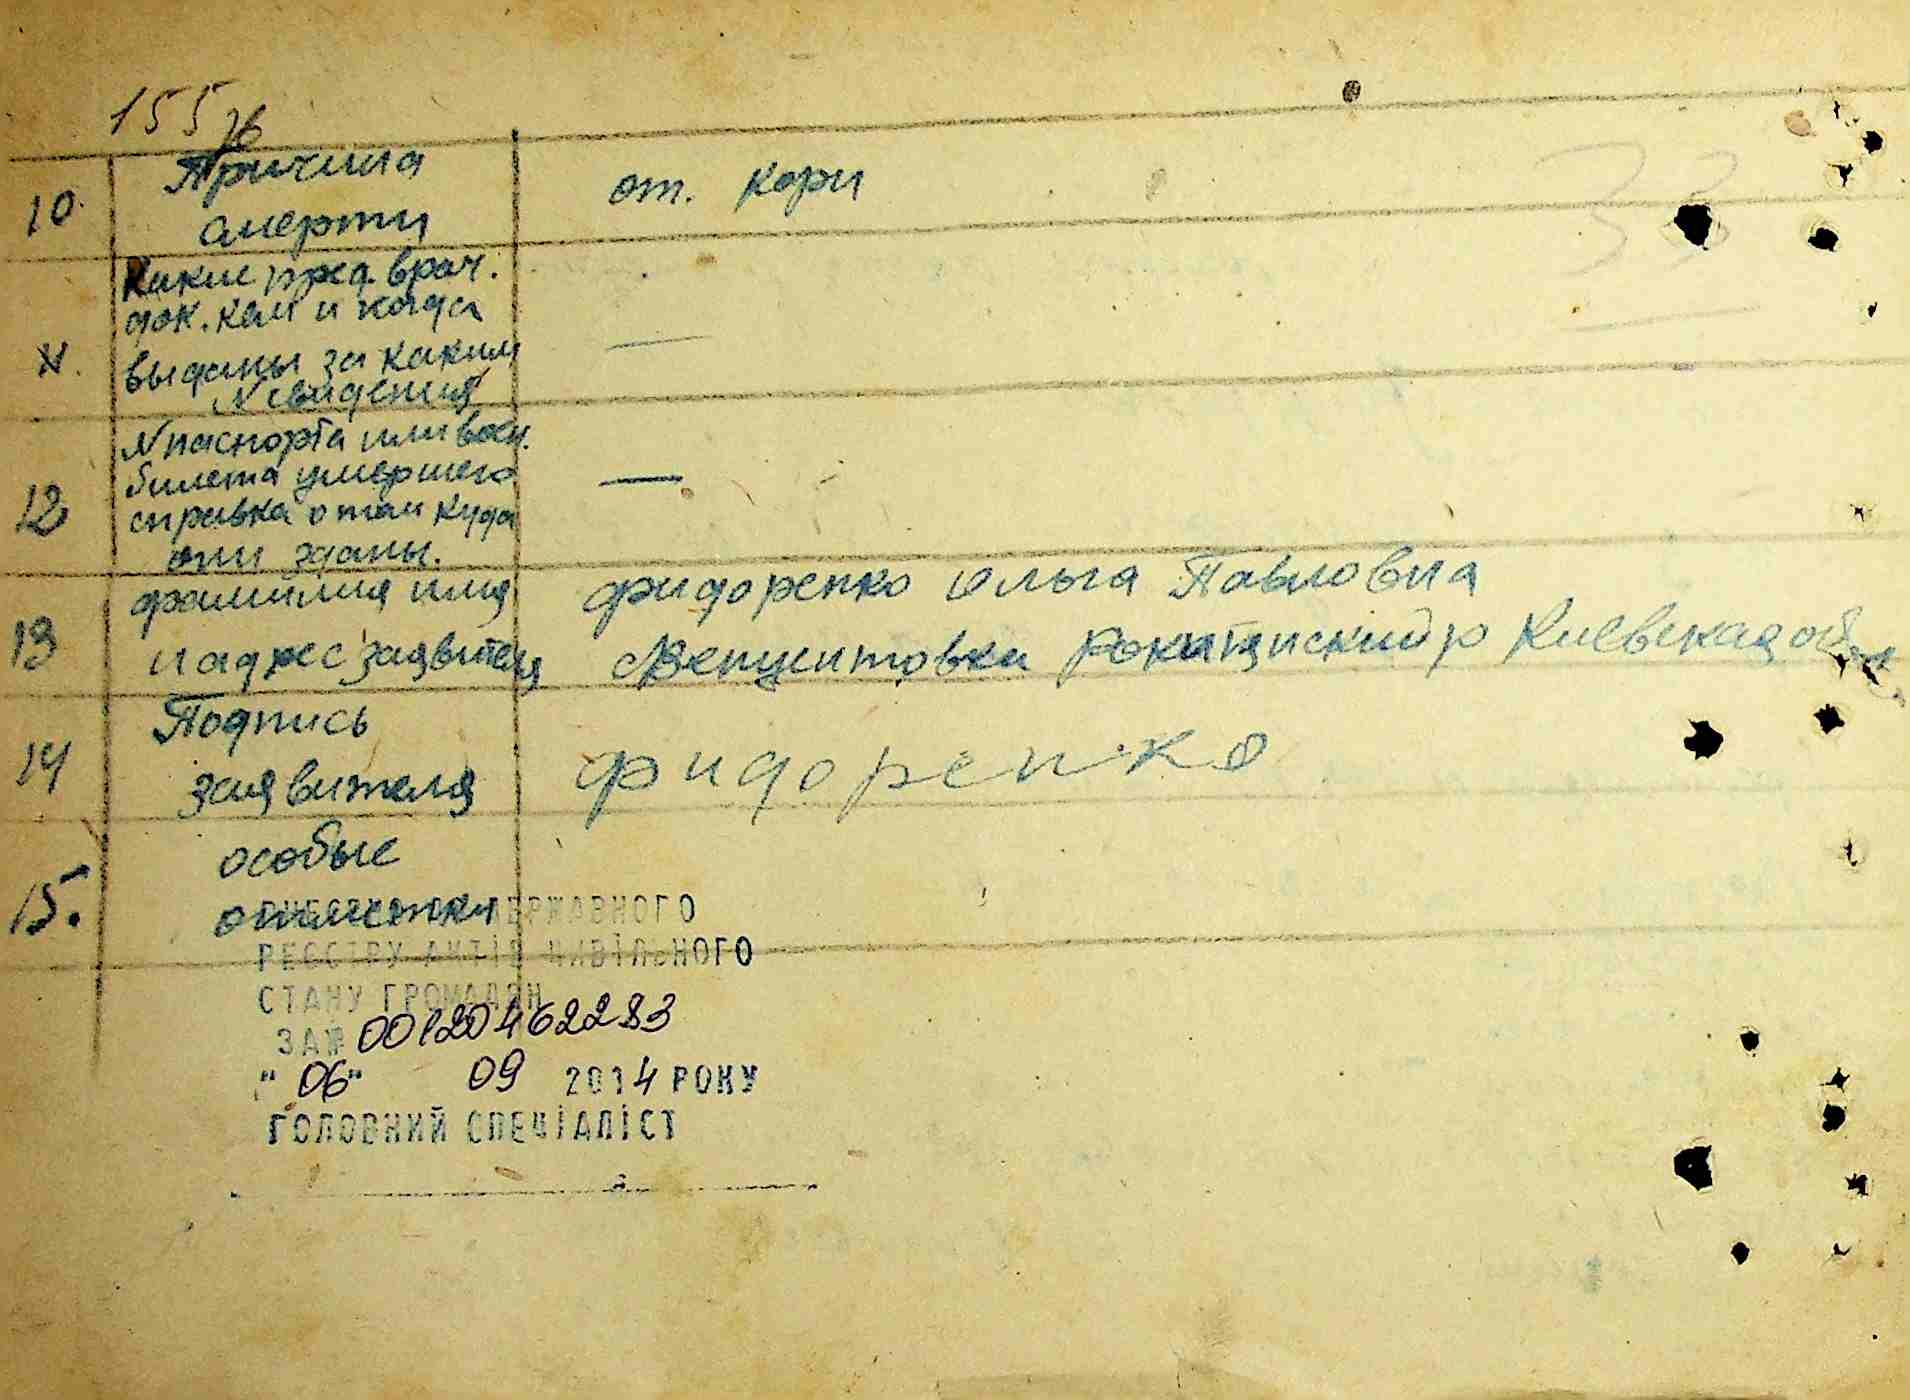 155
10. Причина от. кори
смерти
Какие пред. врач.
док. кем и когда
11. выданы за каким —
№ свидения
№ паспорта или воен.
билета умершего —
12 справка о том куда
они зданы.
фамилия имя Фидоренко Ольга Павловна
13 и адрес заявителя Рокитянский р Киевская обл.
Подпись
14 заявителя Фидоренко
особые
15. отметки ДЕРЖАВНОГО
РЕЄСТРУ АКТІВ ЦИВІЛЬНОГО
СТАНУ ГРОМАДЯН
ЗА № 00120462283
"06" 09 2014 РОКУ
ГОЛОВНИЙ СПЕЦІАЛІСТ
33